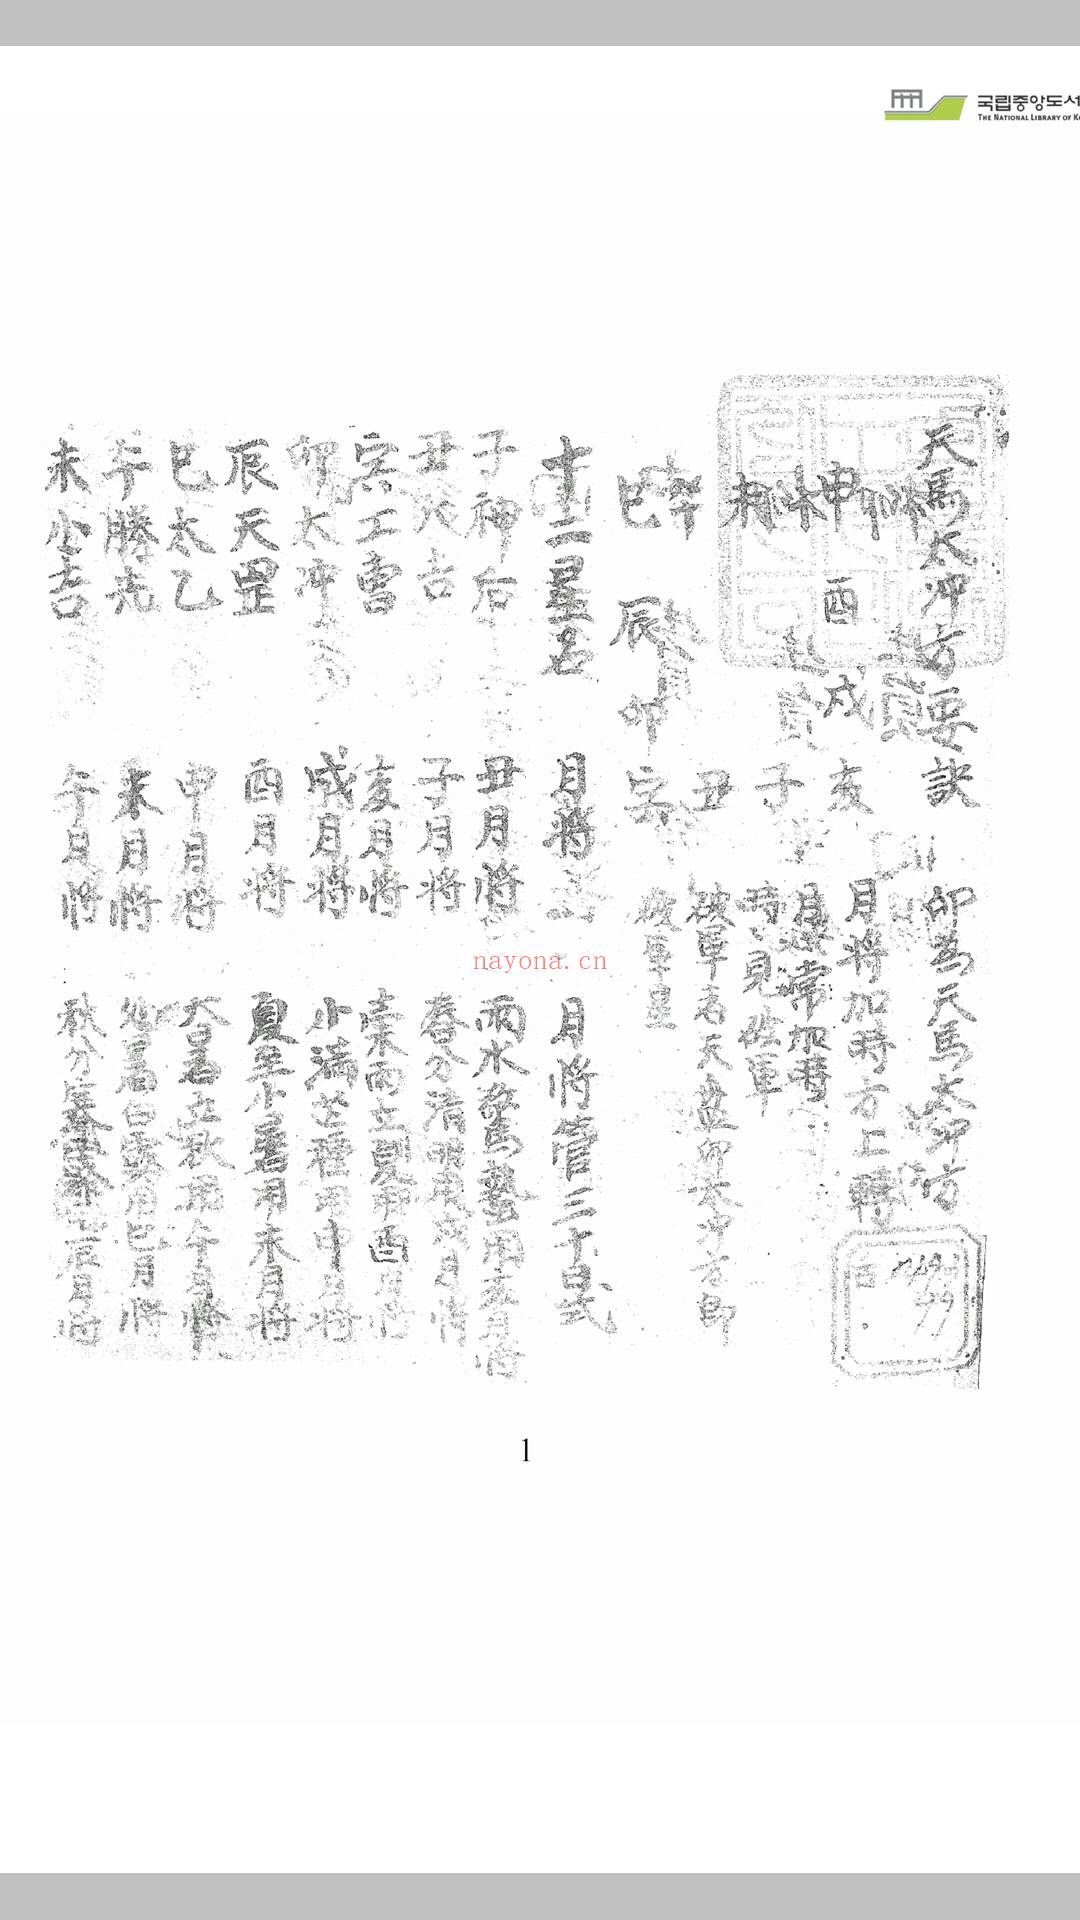 국립중앙도서
THE NATIONAL LIBRARY OF K
天馬太冲方要訣
卯為天馬太冲方
申
酉
戌
亥
月將加時方上轉
子
月將常加時
未
時時見破軍
丑
破軍為天盤卯太冲方卽
午
巳
辰
卯
寅
破軍星
十二星名
月將
月將管三十日式
子神后
丑月將
雨水驚蟄用亥月將
丑大吉
子月將
春分清明用戌月將
寅工曹
亥月將
穀雨立夏用酉月將
卯太冲
戌月將
小滿芒種用申月將
辰天罡
酉月將
夏至小暑用未月將
巳太乙
申月將
大暑立秋用午月將
午勝光
未月將
處暑白露用巳月將
未小吉
午月將
秋分寒露用辰月將
nayona.cn
1